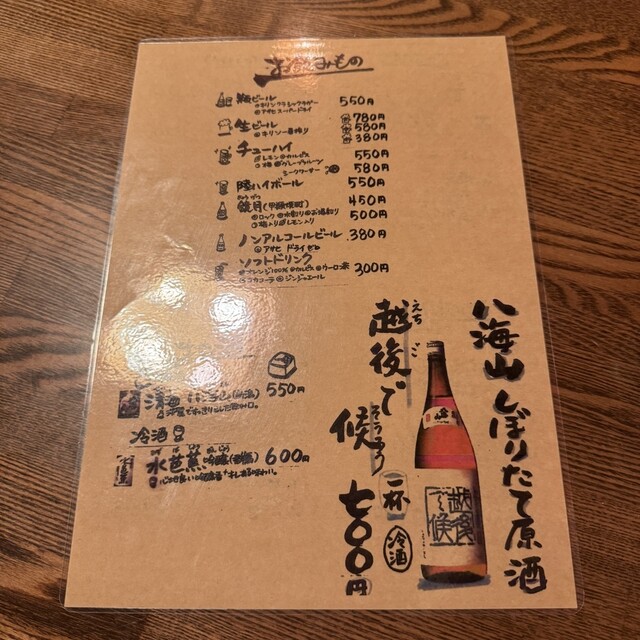 お飲みもの
瓶ビール 550円
●キリンクラシックラガー
●アサヒスーパードライ
生ビール 大780円
●キリン一番搾り 中580円
小380円
チューハイ 550円
●レモン●カルピス
●梅●グレープフルーツ
シークワーサー 580円
陸ハイボール 550円
きょうげつ
鏡月(甲類焼酎) 450円
●ロック●水割り●お湯割り 500円
●梅入り●レモン入り
ノンアルコールビール 380円
●アサヒ ドライゼロ
ソフトドリンク 300円
●オレンジ100%●カルピス●ウーロン茶
●コカコーラ●ジンジャエール
550円
冷酒
水芭蕉 吟醸 600円
八海山しぼりたて原酒
えちご
越後で
そうろう
候
一杯
七〇〇円
冷酒
越後で候